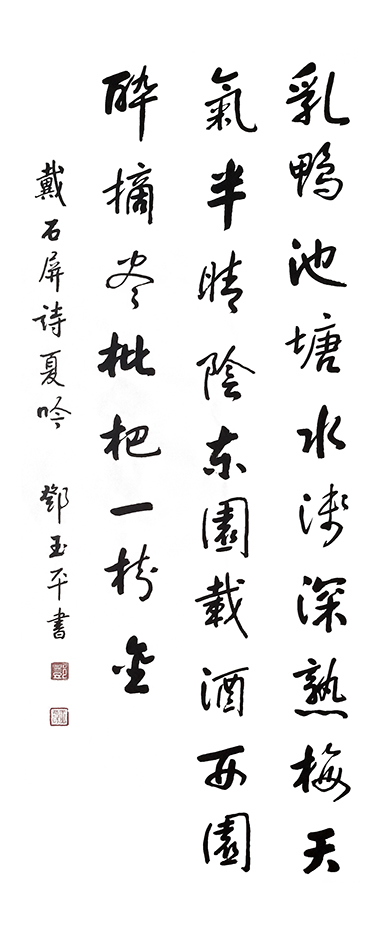 乳鴨池塘水淺深熟梅天
氣半晴陰東園載酒西園
醉摘尽枇杷一树金
戴石屏詩夏吟 鄧玉平書